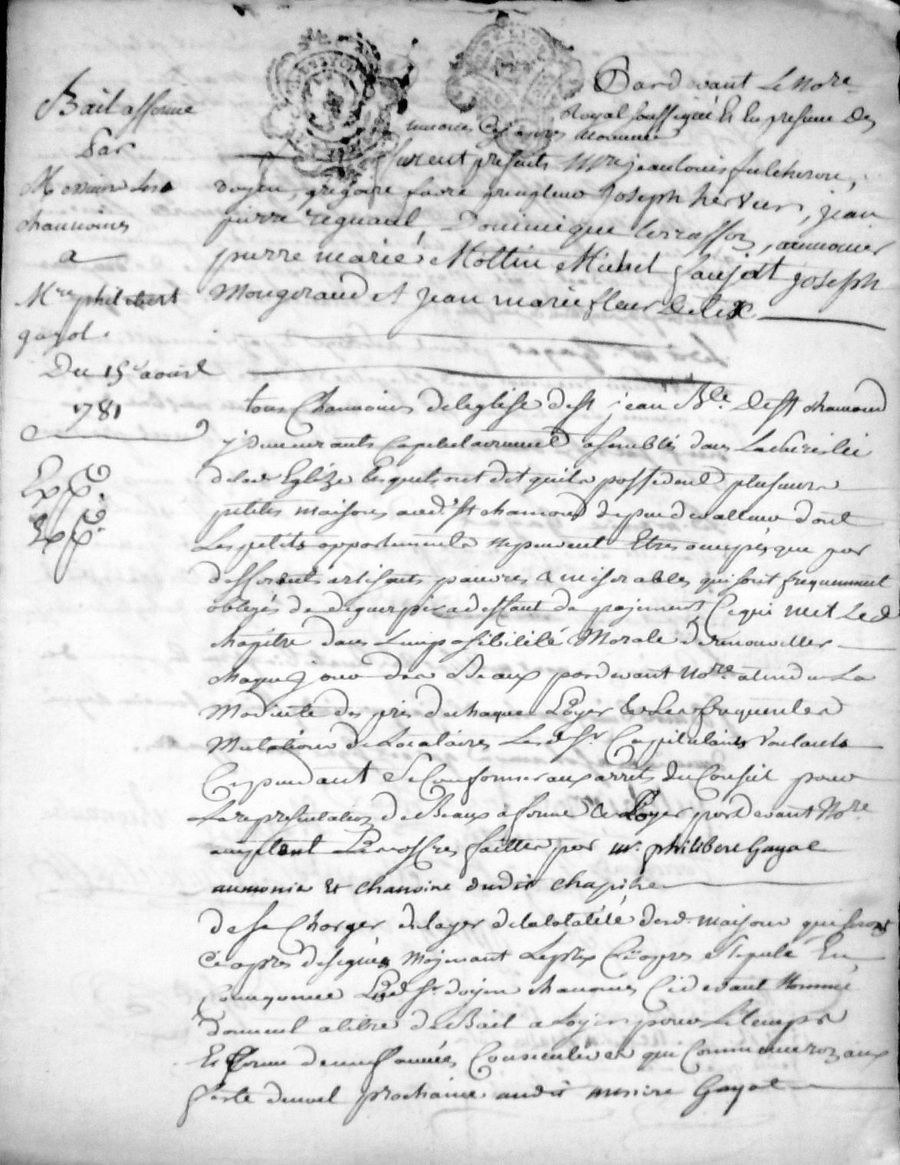 Bail afferme
Par
Messieurs les
chanoines
a
Mre philibert
gayot.
Du 15e aoust
1781
Exp.
Exp.
Pardevant Le Nore
Royal soussigné Et En presence des
temoins Cy apres nommés
furent presents Mre jean louis
doyen, gregoire favre Joseph hervier, jean
pierre regnaud, Dominique terrasson, aumonier
pierre marie Mottin Michel Joseph
Mongeraud et jean marie fleurdelix
tous Chanoines de leglise de st jean Bte. De st chamond
y demeurants Capitulairement assemblés dans La
de lad Eglize Lesquels ont dit quils possedent plusieurs
petites maisons aud. st chamond dependantes dont
Les petits appartements ne peuvent Etre occupés que par
differents artisants pauvres & miserables qui sont frequemment
obligés de deguerpir a deffaut de payement Ce qui met Led
chapitre dans Limpossibilité Morale de renouveller
chaque jour des Beaux pardevant Nore attendu La
Modicité des prix de chaque Loyer & Les frequentes
Mutations de Locataires Lesd. Srs Capitulants Voulants
Cependant Se Conformer aux arrets du Conseil pour
La representation de Beaux a ferme & Loyer pardevant Nore
acceptent Les offres faittes par Mr. philibert Gayot
aumonier Et chanoine dudit chapitre
de se Charger du loyer de la totalité desd. maisons qui seront
Cy apres designées Moyennant Le prix Cy apres stipulé En
Consequence Lesd. Srs doyen chanoines Cy devant Nommés
donnent a titre de Bail a Loyer pour Le temps
Et terme de neuf années Consecutives qui Commenceront aux
feste de noel prochaine audit messire Gayot